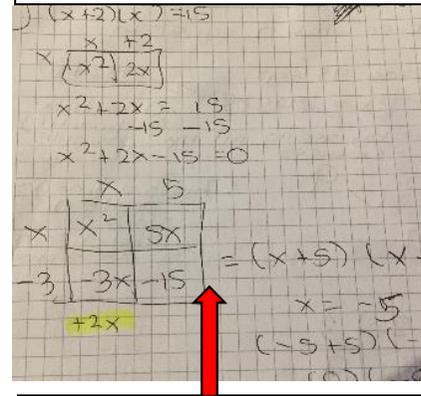 (x+2)(x) = 15
x +2
x x² 2x
x² + 2x = 15
-15 -15
x² + 2x - 15 = 0
x 5
x x² 5x
-3 -3x -15 = (x+5) (x-
+2x x = -5
(-5+5)(-